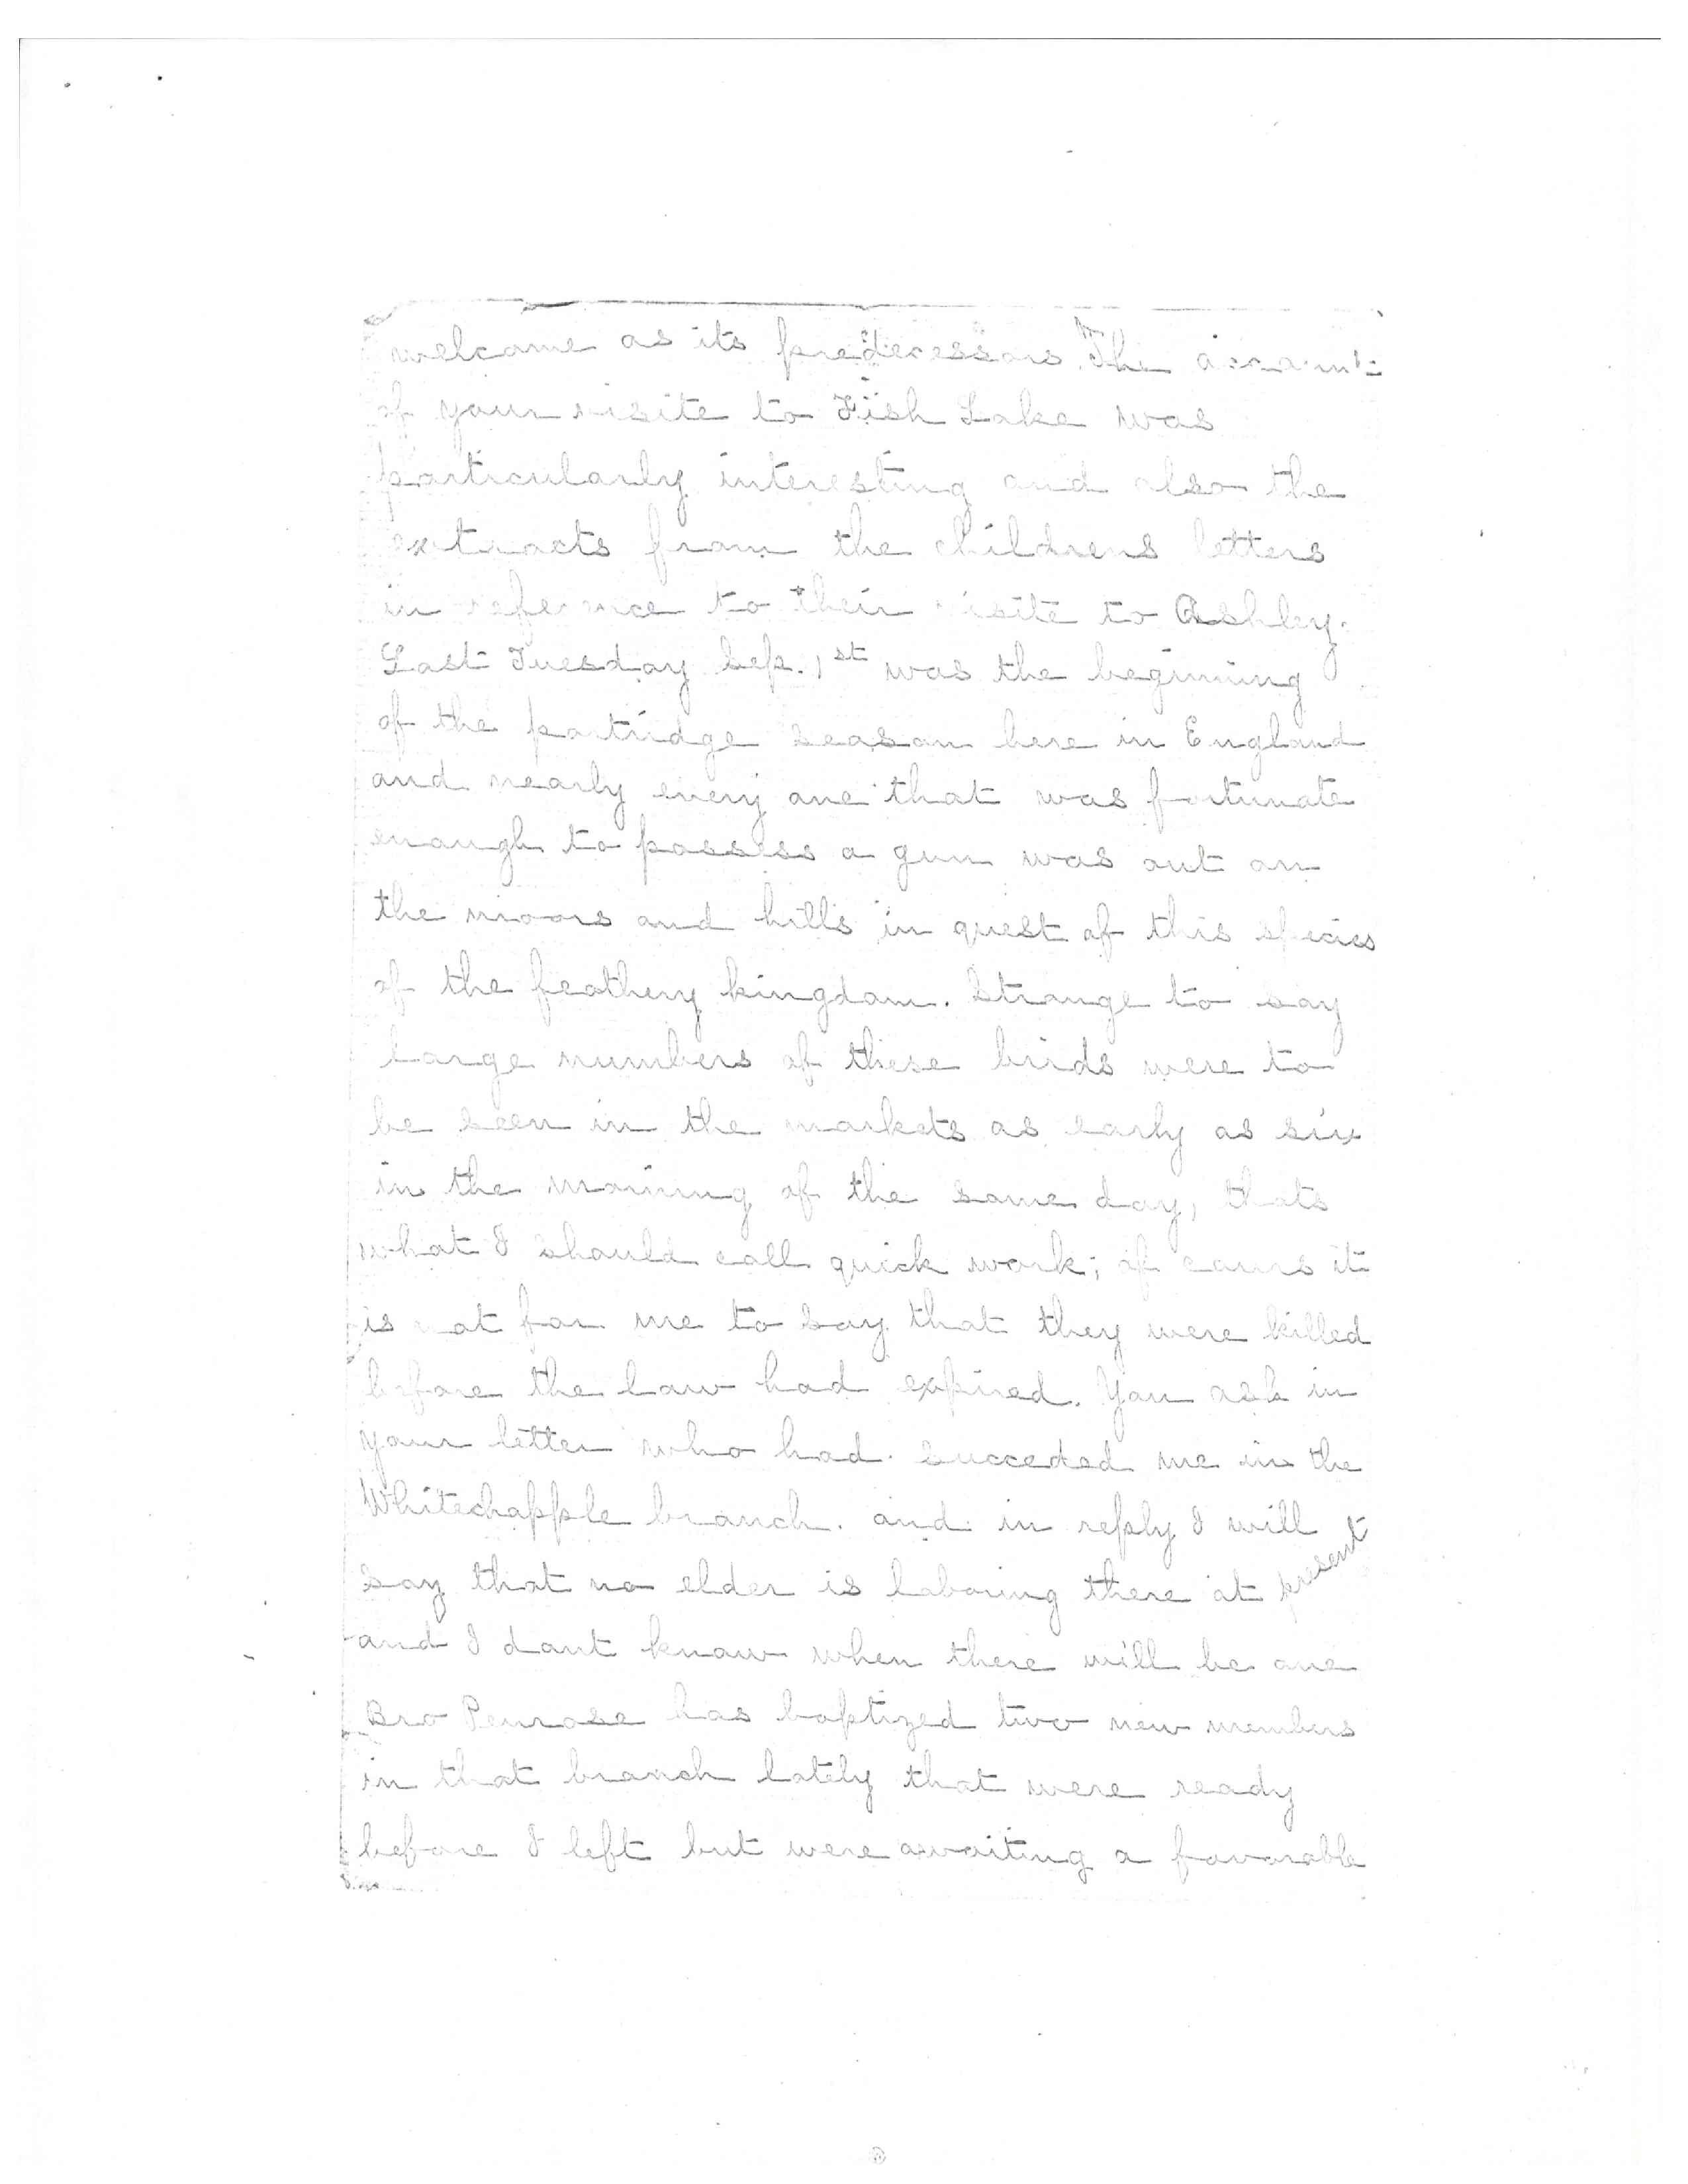 welcome as its predecessors. The account
of your visite to Fish Lake was
particularly interesting and also the
extracts from the childrens letters
in reference to their visite to Ashley.
Last Tuesday Sep. 1st was the beginning
of the partridge season here in England
and nearly every one that was fortunate
enough to possess a gun was out on
the moors and hills in quest of this species
of the feathery kingdom. Strange to say
large numbers of these birds were to
be seen in the markets as early as six
in the morning of the same day, thats
what I should call quick work; of cours it
is not for me to say that they were killed
before the law had expired. You ask in
your letter who had succeded me in the
Whitechapple branch. and in reply I will
say that no elder is laboring there at present
and I dont know when there will be one
Bro Penrose has baptized two new members
in that branch lately that were ready
before I left but were awaiting a favorable